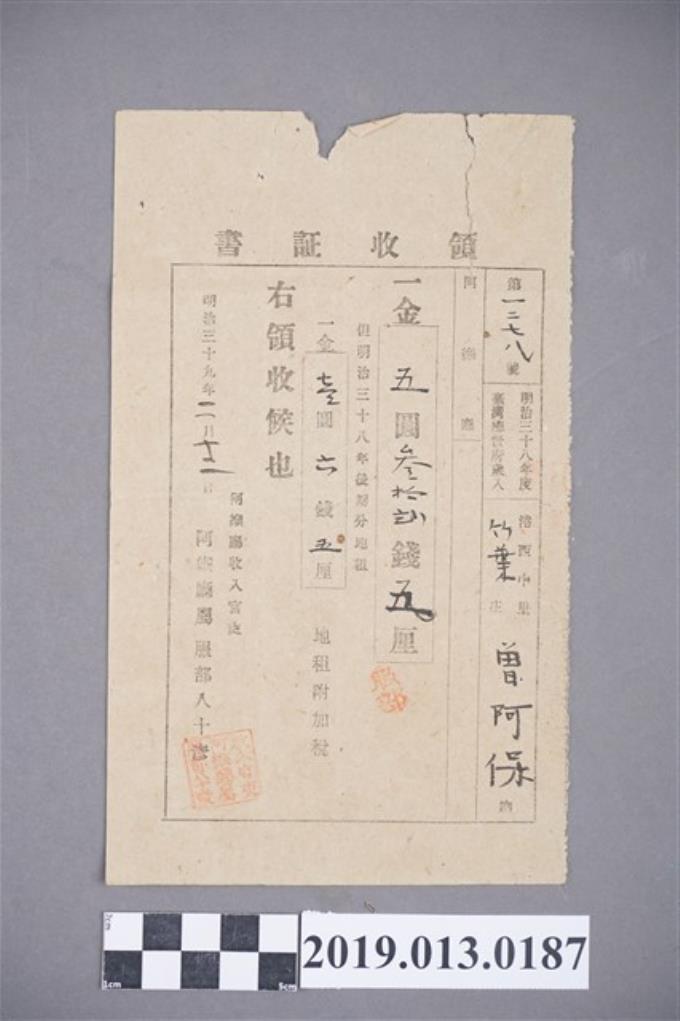 領收証書
第一二七八號
明治三十八年度
臺灣總督府歲入
港西中里
竹葉庄
曾阿保 納
阿緱廳
一金五圓叁拾弍錢五厘
但明治三十八年後期分地租
一金壹圓六錢五厘 地租附加稅
右領收候也
明治三十九年二月十二日
阿緱廳收入官吏
阿緱廳屬 服部八十
服部
1cm
5cm
2019.013.0187